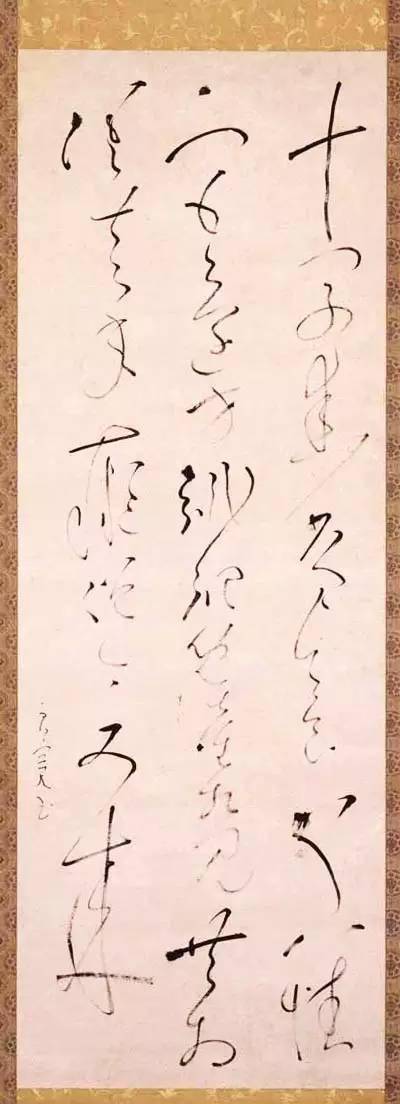 十字街頭乞食了八幡
宮邊方徘徊兒童相見共相
語去年癡僧今又来
良寛書